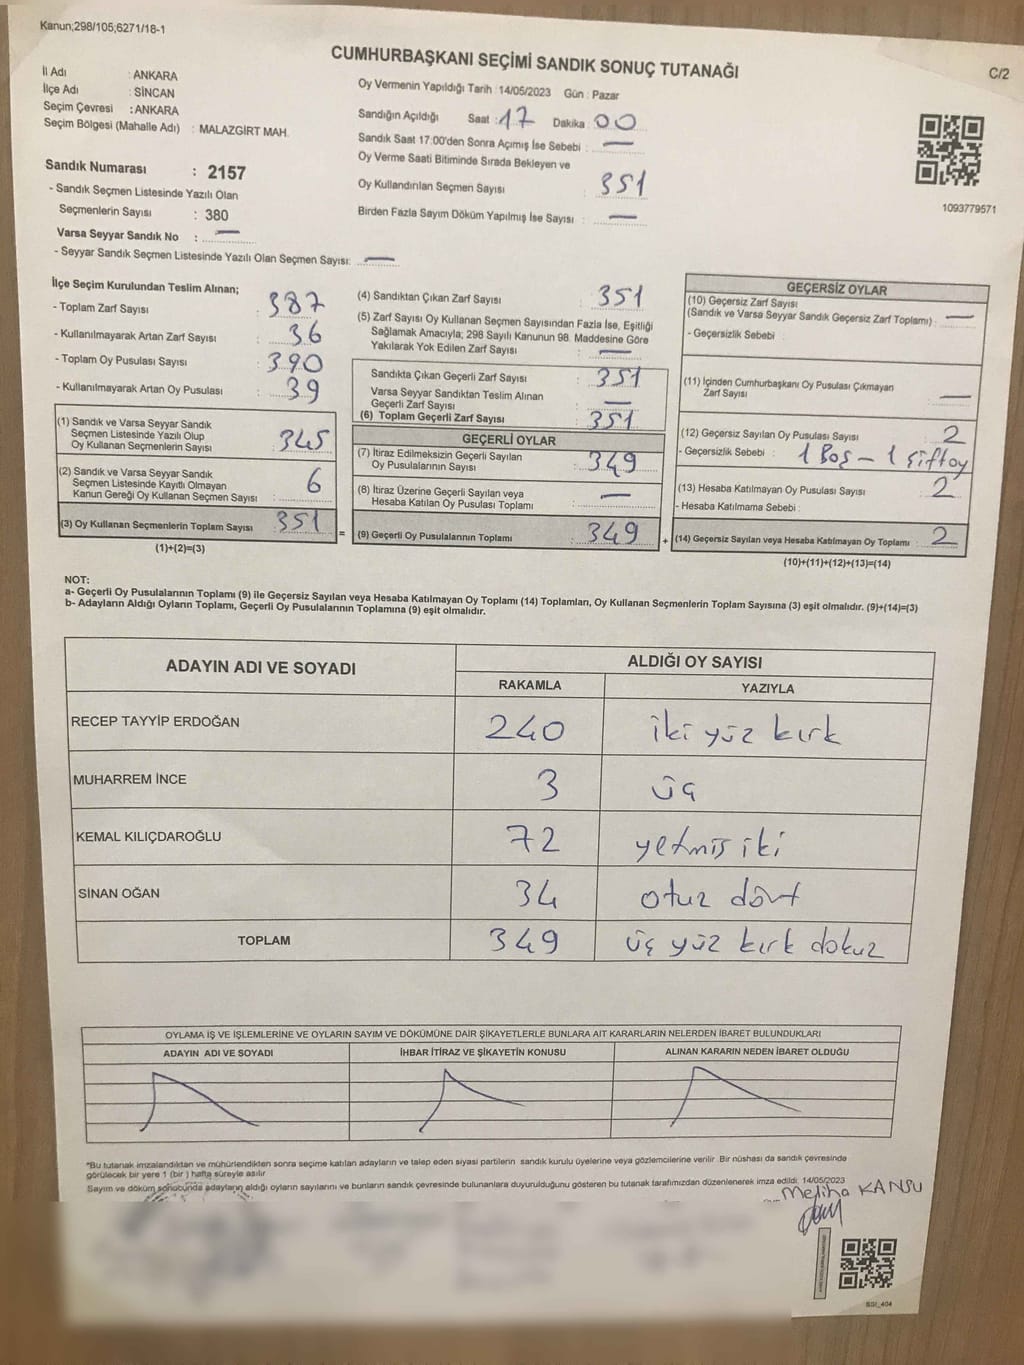 Kanun;298/105;6271/18-1
CUMHURBAŞKANI SEÇİMİ SANDIK SONUÇ TUTANAĞI
C/2
İl Adı : ANKARA
İlçe Adı : SİNCAN
Seçim Çevresi : ANKARA
Seçim Bölgesi (Mahalle Adı) : MALAZGİRT MAH.
Sandık Numarası : 2157
- Sandık Seçmen Listesinde Yazılı Olan
Seçmenlerin Sayısı : 380
Varsa Seyyar Sandık No : —
- Seyyar Sandık Seçmen Listesinde Yazılı Olan Seçmen Sayısı: —
Oy Vermenin Yapıldığı Tarih : 14/05/2023 Gün : Pazar
Sandığın Açıldığı Saat : 17 Dakika 00
Sandık Saat 17:00'den Sonra Açımış İse Sebebi : —
Oy Verme Saati Bitiminde Sırada Bekleyen ve
Oy Kullandırılan Seçmen Sayısı : 351
Birden Fazla Sayım Döküm Yapılmış İse Sayısı : —
1093779571
İlçe Seçim Kurulundan Teslim Alınan;
- Toplam Zarf Sayısı : 387
- Kullanılmayarak Artan Zarf Sayısı : 36
- Toplam Oy Pusulası Sayısı : 390
- Kullanılmayarak Artan Oy Pusulası : 39
(1) Sandık ve Varsa Seyyar Sandık
Seçmen Listesinde Yazılı Olup
Oy Kullanan Seçmenlerin Sayısı : 345
(2) Sandık ve Varsa Seyyar Sandık
Seçmen Listesinde Kayıtlı Olmayan
Kanun Gereği Oy Kullanan Seçmen Sayısı : 6
(3) Oy Kullanan Seçmenlerin Toplam Sayısı : 351
(1)+(2)=(3)
=
(4) Sandıktan Çıkan Zarf Sayısı : 351
(5) Zarf Sayısı Oy Kullanan Seçmen Sayısından Fazla İse, Eşitliği
Sağlamak Amacıyla; 298 Sayılı Kanunun 98. Maddesine Göre
Yakılarak Yok Edilen Zarf Sayısı : —
Sandıkta Çıkan Geçerli Zarf Sayısı : 351
Varsa Seyyar Sandıktan Teslim Alınan
Geçerli Zarf Sayısı : —
(6) Toplam Geçerli Zarf Sayısı : 351
GEÇERLİ OYLAR
(7) İtiraz Edilmeksizin Geçerli Sayılan
Oy Pusulalarının Sayısı : 349
(8) İtiraz Üzerine Geçerli Sayılan veya
Hesaba Katılan Oy Pusulası Toplamı : —
(9) Geçerli Oy Pusulalarının Toplamı : 349
+
GEÇERSİZ OYLAR
(10) Geçersiz Zarf Sayısı
(Sandık ve Varsa Seyyar Sandık Geçersiz Zarf Toplamı) : —
- Geçersizlik Sebebi :
(11) İçinden Cumhurbaşkanı Oy Pusulası Çıkmayan
Zarf Sayısı : —
(12) Geçersiz Sayılan Oy Pusulası Sayısı : 2
- Geçersizlik Sebebi : 1 Boş – 1 çiftoy
(13) Hesaba Katılmayan Oy Pusulası Sayısı : 2
- Hesaba Katılmama Sebebi :
(14) Geçersiz Sayılan veya Hesaba Katılmayan Oy Toplamı : 2
(10)+(11)+(12)+(13)=(14)
NOT:
a- Geçerli Oy Pusulalarının Toplamı (9) ile Geçersiz Sayılan veya Hesaba Katılmayan Oy Toplamı (14) Toplamları, Oy Kullanan Seçmenlerin Toplam Sayısına (3) eşit olmalıdır. (9)+(14)=(3)
b- Adayların Aldığı Oyların Toplamı, Geçerli Oy Pusulalarının Toplamına (9) eşit olmalıdır.
ADAYIN ADI VE SOYADI ALDIĞI OY SAYISI
RAKAMLA YAZIYLA
RECEP TAYYİP ERDOĞAN 240 iki yüz kırk
MUHARREM İNCE 3 üç
KEMAL KILIÇDAROĞLU 72 yetmiş iki
SİNAN OĞAN 34 otuz dört
TOPLAM 349 üç yüz kırk dokuz
OYLAMA İŞ VE İŞLEMLERİNE VE OYLARIN SAYIM VE DÖKÜMÜNE DAİR ŞİKAYETLERLE BUNLARA AİT KARARLARIN NELERDEN İBARET BULUNDUKLARI
ADAYIN ADI VE SOYADI İHBAR İTİRAZ VE ŞİKAYETİN KONUSU ALINAN KARARIN NEDEN İBARET OLDUĞU
*Bu tutanak imzalandıktan ve mühürlendikten sonra seçime katılan adayların ve talep eden siyasi partilerin sandık kurulu üyelerine veya gözlemcilerine verilir. Bir nüshası da sandık çevresinde
görülecek bir yere 1 (bir) hafta süreyle asılır.
Sayım ve döküm sonucunda adayların aldığı oyların sayılarını ve bunların sandık çevresinde bulunanlara duyurulduğunu gösteren bu tutanak tarafımızdan düzenlenerek imza edildi. 14/05/2023
Meliha KANSU
BSI_404